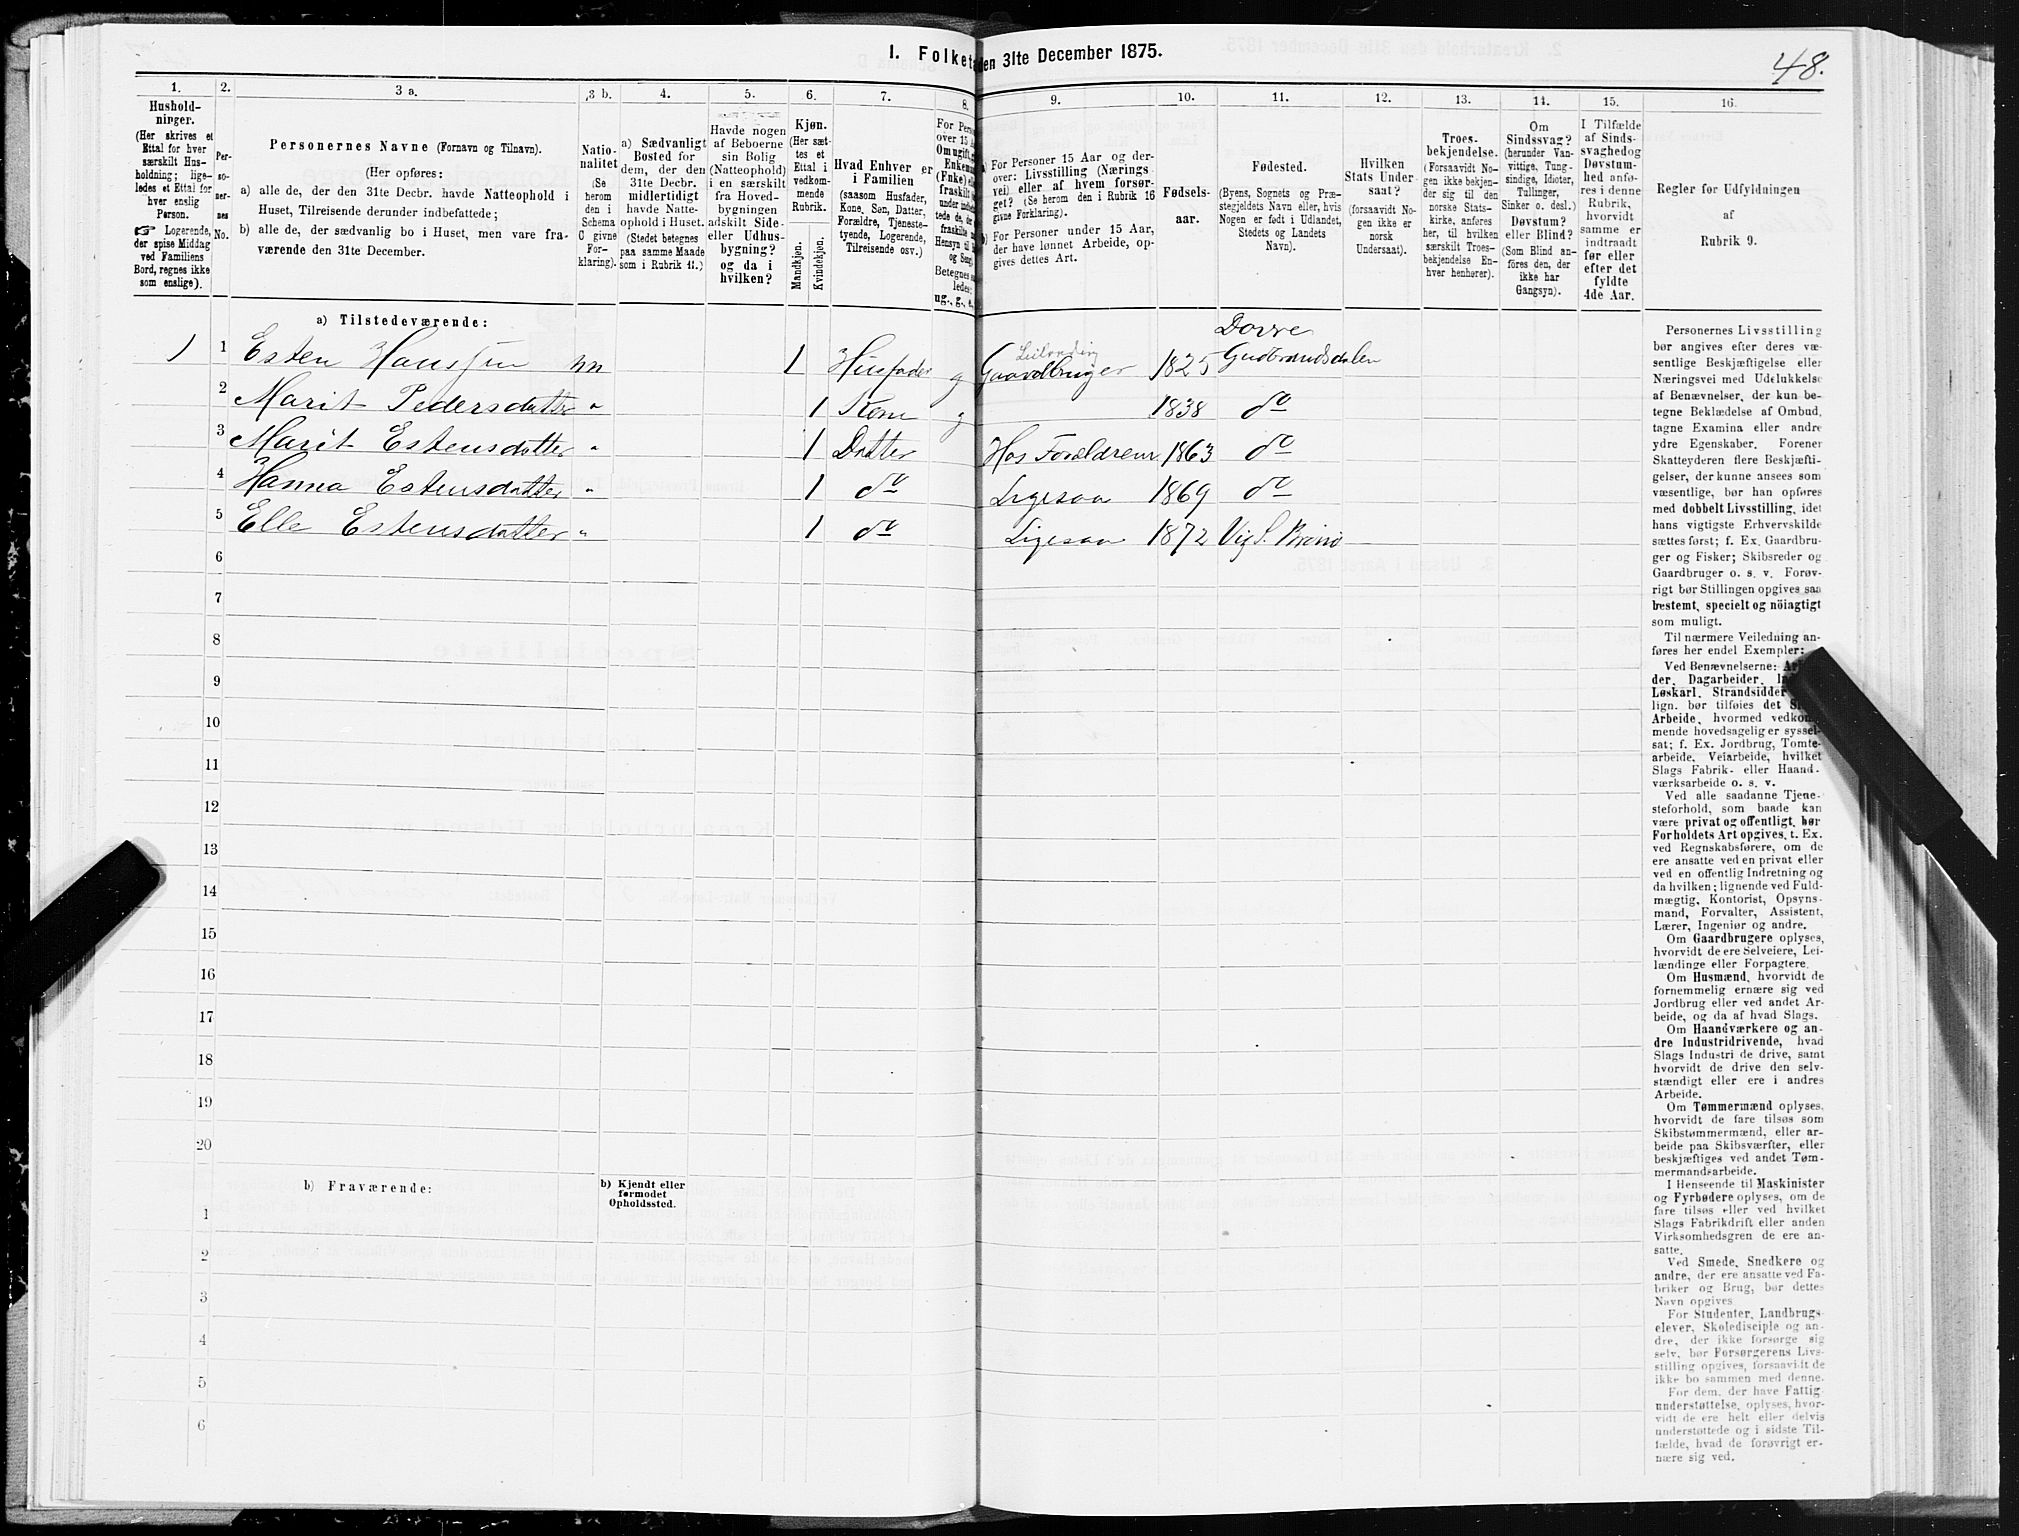 I. Folket den 31te December 1875.
48.
1.
2.
3 a.
3 b.
4.
5.
6.
7.
8.
9.
10.
11.
12.
13.
14.
15.
16.
Hushold-
ninger.
(Her skrives et
Ettal for hver
særskilt Hus-
holdning; lige-
ledes et Ettal for
hver enslig
Person.
☞ Logerende,
der spise Middag
ved Familiens
Bord, regnes ikke
som enslige).
Per-
so-
ner-
nes
No.
Personernes Navne (Fornavn og Tilnavn).
(Her opføres:
a) alle de, der den 31te Decbr. havde Natteophold i
Huset, Tilreisende derunder indbefattede;
b) alle de, der sædvanlig bo i Huset, men vare fra-
værende den 31te December.
Natio-
nalitet
(Se
herom
den i
Schema
C givne
For-
klaring).
a) Sædvanligt
Bosted for
dem, der den
31te Decbr.
midlertidigt
havde Natte-
ophold i Huset.
(Stedet betegnes
paa samme Maade
som i Rubrik 11.)
Havde nogen
af Beboerne
sin Bolig
(Natteophold)
i en særskilt
fra Hoved-
bygningen
adskilt Side-
eller Udhus-
bygning?
og da i
hvilken?
Kjøn.
(Her sæt-
tes et
Ettal i
vedkom-
mende
Rubrik.
Mandkjøn.
Kvindekjøn.
Hvad Enhver er
i Familien
(saasom Husfader,
Kone, Søn, Datter,
Forældre, Tjeneste-
tyende, Logerende,
Tilreisende osv.)
For Pers
over 15 A
Om ugift, g
Enkem
(Enke) e
fraskilt
under indb
tede de,
fraskilte
Hensyn til
og Seng.
Betegnes s
ledes:
ug., g., e.,
a) For Personer 15 Aar og der-
over: Livsstilling (Nærings
vei) eller af hvem forsør-
get? (Se herom den i Rubrik 16
givne Forklaring).
b) For Personer under 15 Aar,
der have lønnet Arbeide, op-
gives dettes Art.
Fødsels-
aar.
Fødested.
(Byens, Sognets og Præ-
stegjeldets Navn eller, hvis
Nogen er født i Udlandet,
Stedets og Landets
Navn).
Hvilken
Stats Under
saat?
(forsaavidt No-
gen ikke er
norsk
Undersaat).
Troes-
bekjendelse.
(Forsaavidt No-
gen ikke bekjen-
der sig til den
norske Stats-
kirke, anføres
her, til hvilken
særskilt Troes-
bekjendelse En-
hver henhører).
Om
Sindssvag?
(herunder Van-
vittige, Tung-
sindige, Idioter,
Tullinger,
Sinker o. desl.)
Døvstum?
eller Blind?
(Som Blind an-
føres den, der
ikke har
Gangsyn).
I Tilfælde
af Sinds-
svaghed og
Døvstum-
hed anfø-
res i denne
Rubrik,
hvorvidt
samme er
indtraadt
før eller
efter det
fyldte
4de Aar.
Regler for Udfyldningen
af
Rubrik 9.
a) Tilstedeværende:
1 1 Esten Hanssen nn 1 Husfader g Leilending Gaardbruger 1825 Dovre Gudbrandsdalen
2 Marit Pedersdatter " 1 Kone g 1838 do
3 Marit Estensdatter " 1 Datter Hos Forældrene 1863 do
4 Hanna Estensdatter " 1 do Ligesaa 1869 do
5 Elle Estensdatter " 1 do Ligesaa 1872 Vig S.
6
7
8
9
10
11
12
13
14
15
16
17
18
19
20
b) Fraværende:
b) Kjendt eller
formodet
Opholdssted.
1
2
3
4
5
6
Personernes Livsstilling
bør angives efter deres væ-
sentlige Beskjæftigelse eller
Næringsvei med Udelukkelse
af Benævnelser, der kun be-
tegne Beklædelse af Ombud,
tagne Examina eller andre
ydre Egenskaber. Forener
Skatteyderen flere Beskjæfti-
gelser, der kunne ansees som
væsentlige, bør han opføres
med dobbelt Livsstilling, idet
hans vigtigste Erhvervskilde
sættes først; f. Ex. Gaardbru-
ger og Fisker; Skibsreder og
Gaardbruger o. s. v. Forøv-
rigt bør Stillingen opgives saa
bestemt, specielt og nöiagtigt
som muligt.
Til nærmere Veiledning an-
føres her endel Exempler:
Ved Benævnelserne: Ar
der, Dagarbeider, In
Løskarl, Strandsidder
lign. bør tilføies det Sl
Arbeide, hvormed vedkom-
mende hovedsagelig er syssel-
sat; f. Ex. Jordbrug, Tomte-
arbeide, Veiarbeide, hvilket
Slags Fabrik- eller Haand-
værksarbeide o. s. v.
Ved alle saadanne Tjene-
steforhold, som baade kan
være privat og offentligt, bør
Forholdets Art opgives, t. Ex.
ved Regnskabsførere, om de
ere ansatte ved en privat eller
ved en offentlig Indretning og
da hvilken; lignende ved Fuld-
mægtig, Kontorist, Opsyns-
mand, Forvalter, Assistent,
Lærer, Ingeniør og andre.
Om Gaardbrugere oplyses,
hvorvidt de ere Selveiere, Lei-
lændinge eller Forpagtere.
Om Husmænd, hvorvidt de
fornemmelig ernære sig ved
Jordbrug eller ved andet Ar-
beide, og da af hvad Slags.
Om Haandværkere og an-
dre Industridrivende, hvad
Slags Industri de drive, samt
hvorvidt de drive den selv-
stændigt eller ere i andres
Arbeide.
Om Tømmermænd oplyses,
hvorvidt de fare tilsøs som
Skibstømmermænd, eller ar-
beide paa Skibsværfter, eller
beskjæftiges ved andet Tøm-
mermandsarbeide.
I Henseende til Maskinister
og Fyrbødere oplyses, om de
fare tilsøs eller ved hvilket
Slags Fabrikdrift eller anden
Virksomhedsgren de ere an-
satte.
Ved Smede, Snedkere og
andre, der ere ansatte ved Fa-
briker og Brug, bør dettes
Navn opgives
For Studenter, Landbrugs-
elever, Skoledisciple og an-
dre, der ikke forsørge sig
selv, bør Forsørgerens Livs-
stilling opgives, forsaavidt de
ikke bo sammen med denne.
For dem, der have Fattig-
understøttelse, oplyses, hvor-
vidt de ere helt eller delvis
understøttede og i sidste Til-
fælde, hvad de forøvrigt er-
nære sig ved.